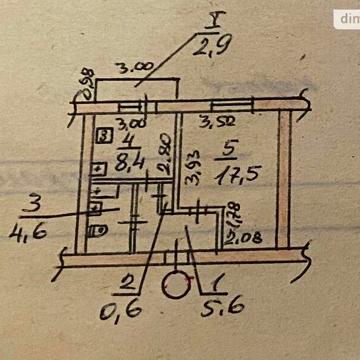 dim
I
2,9
3.00
0,98
3,00
3,50
4
8,4
2.80
3,93
5
17,5
3
4,6
1,78
2.08
2
0,6
1
5.6